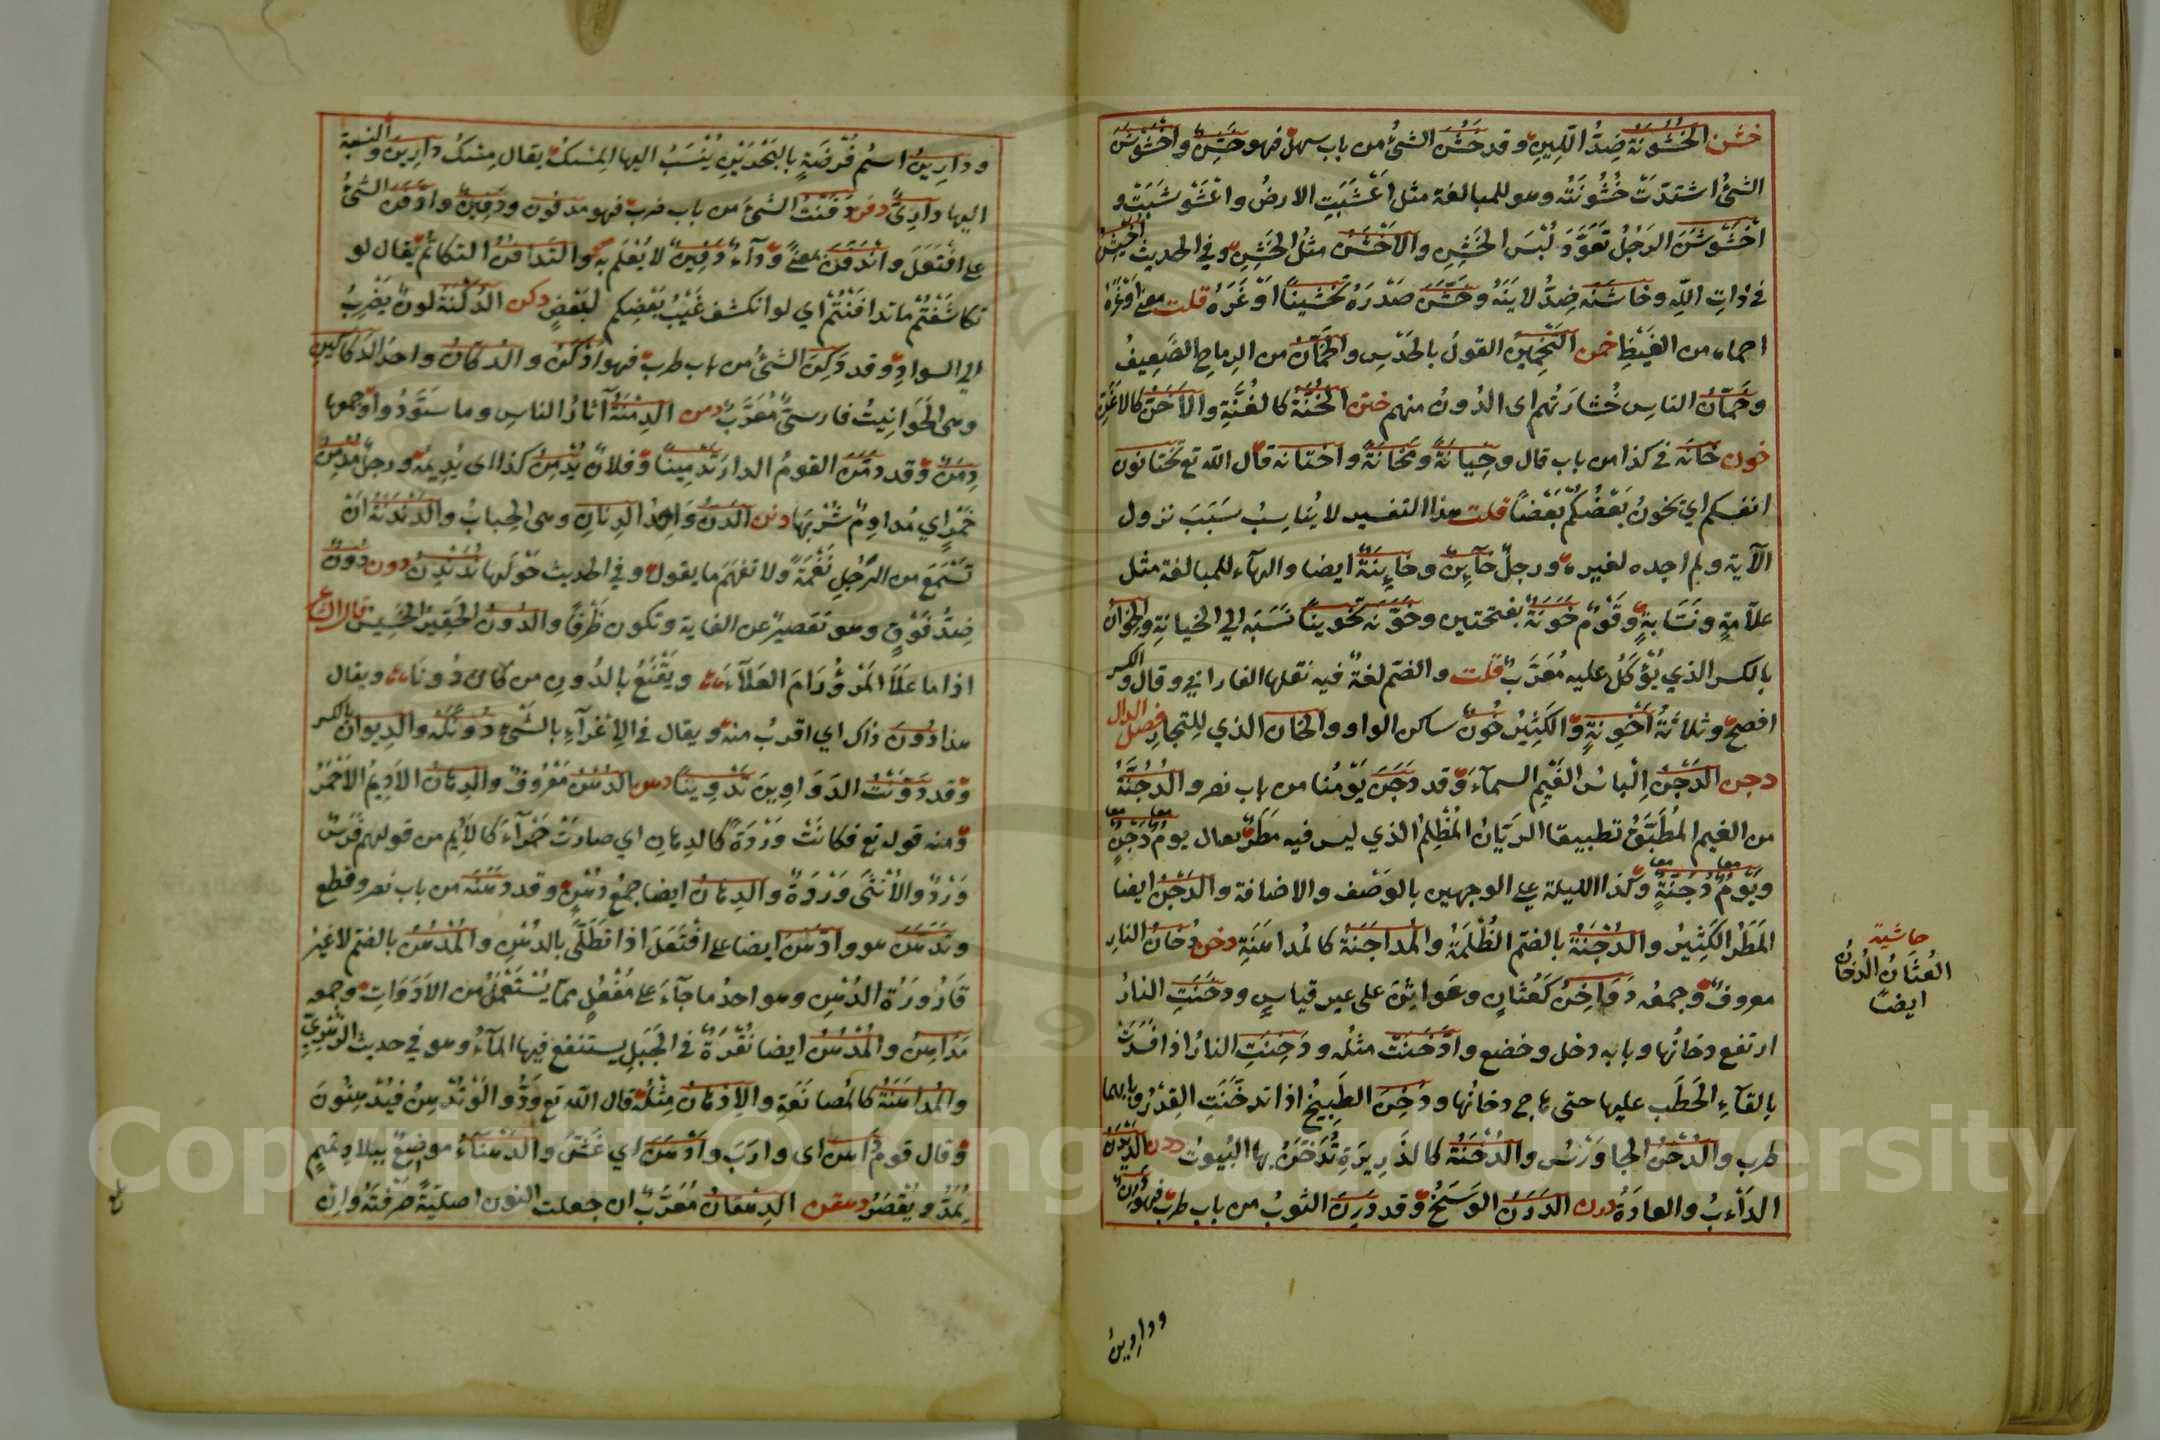 خشن الخُشُونَةُ ضِدُّ اللِّينِ وقد خَشُنَ الشئُ من باب سهل فهو خَشِنٌ واخْشَوْشَنَ
الشئُ اشتدّتْ خُشُونَتُه وهو للمبالغة مثل اَعْشَبَتِ الارضُ واعْشَوْشَبَتْ و
اخْشَوْشَنَ الرَجُلُ تَعَوَّدَ لُبْسَ الخَشِنِ والاَخْشَنُ مثلُ الخَشِنِ وفي الحديث اُخَيْشِنُ
في ذاتِ اللّهِ وخاشَنَه ضِدُّ لايَنَهُ وخَشَّنَ صَدْرَهُ تَخْشِينًا اَوْغَرَهُ قلت معنى اَوْغَرَهُ
احماه من الغَيْظِ خمن التَخْمِينُ القولُ بالحَدْسِ والخَمَّانُ من الرماحِ الضَعِيفُ
وخَمَّانُ الناسِ خُشَارَتُهم اى الدُونُ منهم خنن الخُنَّةُ كالغُنَّةِ والاَخَنُّ كالاَغَنِّ
خون خَانَه في كذا من باب قال وخِيَانَةً ومَخَانَةً واخْتَانَه قال اللّه تع تَخْتانون
انفسكم اي يَخُونُ بَعْضُكُمْ بَعْضًا قلت هذا التفسير لا يُناسِبُ سَبَبَ نزول
الآية ولم اجده لغيره ورجلٌ خآئِنٌ وخائِنَةٌ ايضا والهآء للمبالغة مثل
علاّمةٍ ونَسّابةٍ وقَوْمٌ خَوَنَةٌ بفتحتين وخَوَّنَه تَخْوينًا نَسَبَه الي الخيانةِ والخِوَانُ
بالكسر الذي يُؤكَلُ عليه مُعَرَّبٌ قلت والضم لغةٌ فيه نقلها الفارابي وقال والكسر
افصح وثلاثةُ اَخْوِنَةٍ والكَثِيرُ خُونٌ ساكن الواو والخَان الذي لِلتجارِ فصل الدال
دجن الدَجْنُ اِلْباسُ الغَيْمِ السمآءَ وقد دَجَنَ يَوْمُنا من باب نصر والدُجُنَّةُ
من الغيم المُطَبَّقُ تطبيقا الريّانُ المُظْلِمُ الذي ليس فيه مَطَرٌ يقال يومُ دَجْنٍ معا
ويَوْمُ دُجُنَّةٍ معا وكذا الليلة علي الوجهين بالوَصْف والاضافة والدَجْنُ ايضا
المَطَرُ الكَثِيرُ والدُجْنَةُ بالضم الظُلْمَةُ والمُداجَنَةُ كالمُداهَنَةِ دخن دُخَانُ النارِ
معروفٌ وجمعه دَوَاخِنُ كَعُثَانٍ وعَوَاثِنَ على غير قياسٍ ودخَنَتِ النارُ
ارتفع دخانُها وبابه دخل وخضع وادَّخَنَتْ مثلُه ودَخِنَتِ النارُ اذا فَسَدَتْ
بالقآءِ الحَطَبِ عليها حتى هاج دخانُها ودَخِنَ الطَبِيخُ اذا تدخّنَتِ القِدْرُ وبابهما
طرب والدُخْنُ الجاوَرْسُ والدُخْنَةُ كالذَرِيرَةِ تُدَخَّنُ بها البُيُوتُ ددن الدَيْدَنُ
الدَأْبُ والعادَةُ درن الدَرَنُ الوَسَخُ وقد دَرِنَ الثوبُ من باب طرب فهو دَرِنٌ
ودارين
حاشية
العُثَانُ الدُخَانُ
ايضًا
ودارِينُ اسمُ فُرْضَةٍ بالبَحْرَيْنِ يُنْسَبُ اليها المِسْكُ يقال مِسْكُ دارِينَ والنسبة
اليها دارِيٌّ دفن دَفَنْتُ الشئَ من باب ضرب فهو مدفون ودَفِينٌ وادَّفَنَ الشئُ
على افْتَعَلَ وانْدَفَنَ بمعنًى ودآءٌ دَفِينٌ لا يُعْلَم به والتَدَافُنُ التكاتُم يقال لو
تكاشَفْتُمْ ما تدافَنْتُمْ اي لو انكشف عَيْبُ بَعْضِكم لبَعْضٍ دكن الدُكْنَةُ لونٌ يَضْرِبُ
الي السوادِ وقد دَكِنَ الشئُ من باب طرب فهو اَدْكَنُ والدُكّانُ واحدُ الدَكاكينِ
وهى الحَوَانِيتُ فارسىٌّ مُعَرَّبٌ دمن الدِمْنَةُ آثارُ الناسِ وما سَوَّدُوا وجمعها
دِمَنٌ وقد دَمَّنَ القومُ الدارَ تَدْمِينًا وفلانٌ يُدْمِنُ كذا اى يُدِيمُه ورجلٌ مُدْمِنُ
خَمْرٍ اي مُداوِمٌ شُرْبَها دنن الدَنُّ واحدُ الدِنانِ وهى الحِبابُ والدَنْدَنَةُ اَنْ
تَسْمَعَ من الرَجُلِ نَغْمَةً ولا تفهَمَ ما يقول وفي الحديث حَوْلَها نُدَنْدِنُ دون دُونٌ
ضِدُّ فَوْقٍ وهو تَقصِيرٌ عن الغاية وتكون ظَرْفًا والدُونُ الحَقِيرُ الخَسِيسُ قال الشاعر
اذا ما عَلَا المَرْؤُ رَامَ العَلَآءَ ويَقْنَعُ بالدُونِ من كان دُونَا ويقال
هذا دُونَ ذاك اي اقربُ منه ويقال في الاِغْرَآءِ بالشَىءِ دُونَكَهُ والدِيوانُ بالكسر
وقد دَوَّنْتُ الدَوَاوِينَ تَدْوِينًا دهن الدُهْنُ مَعْرُوفٌ والدِهانُ الاَدِيمُ الاَحْمَرُ
ومنه قوله تع فكانَتْ وَرْدَةً كالدِهانِ اي صارَتْ حَمْرآءَ كالاَدِيمِ من قولهم فَرَسٌ
وَرْدٌ والاُنْثَى وَرْدَةٌ والدِهانُ ايضا جمعُ دُهْنٍ وقد دهَنَه من باب نصر وقطع
وتَدَهَّنَ هو وادَّهَنَ ايضا على افْتَعَلَ اذا تَطَلَّى بالدُهْنِ والمُدْهُنُ بالضم لا غيرُ
قارُورَةُ الدُهْنِ وهو احدُ ما جآءَ على مُفْعُلٍ مما يُسْتَعْمَلُ من الاَدَوَاتِ وجمعه
مَدَاهِنُ والمُدْهُنُ ايضا نُقْرَةٌ في الجَبَلِ يستنقع فيها المآءُ وهو في حديث الزُهْرِيِّ
والمُداهَنَةُ كالمُصانَعَةِ والاِدْهانُ مِثْلُه قال اللّه تع وَدُّوا لَوْ تُدْهِنُ فَيُدْهِنُونَ
وقال قومٌ دَاهَنَ اى وارَبَ واَدْهَنَ اي غَشَّ والدَهْنَآءُ موضِعٌ ببلادِ تميمٍ
يُمَدُّ ويُقْصَرُ دهقن الدِهْقانُ مُعَرَّبٌ ان جعلت النون اصليّةً صَرَفْتَهُ وانْ